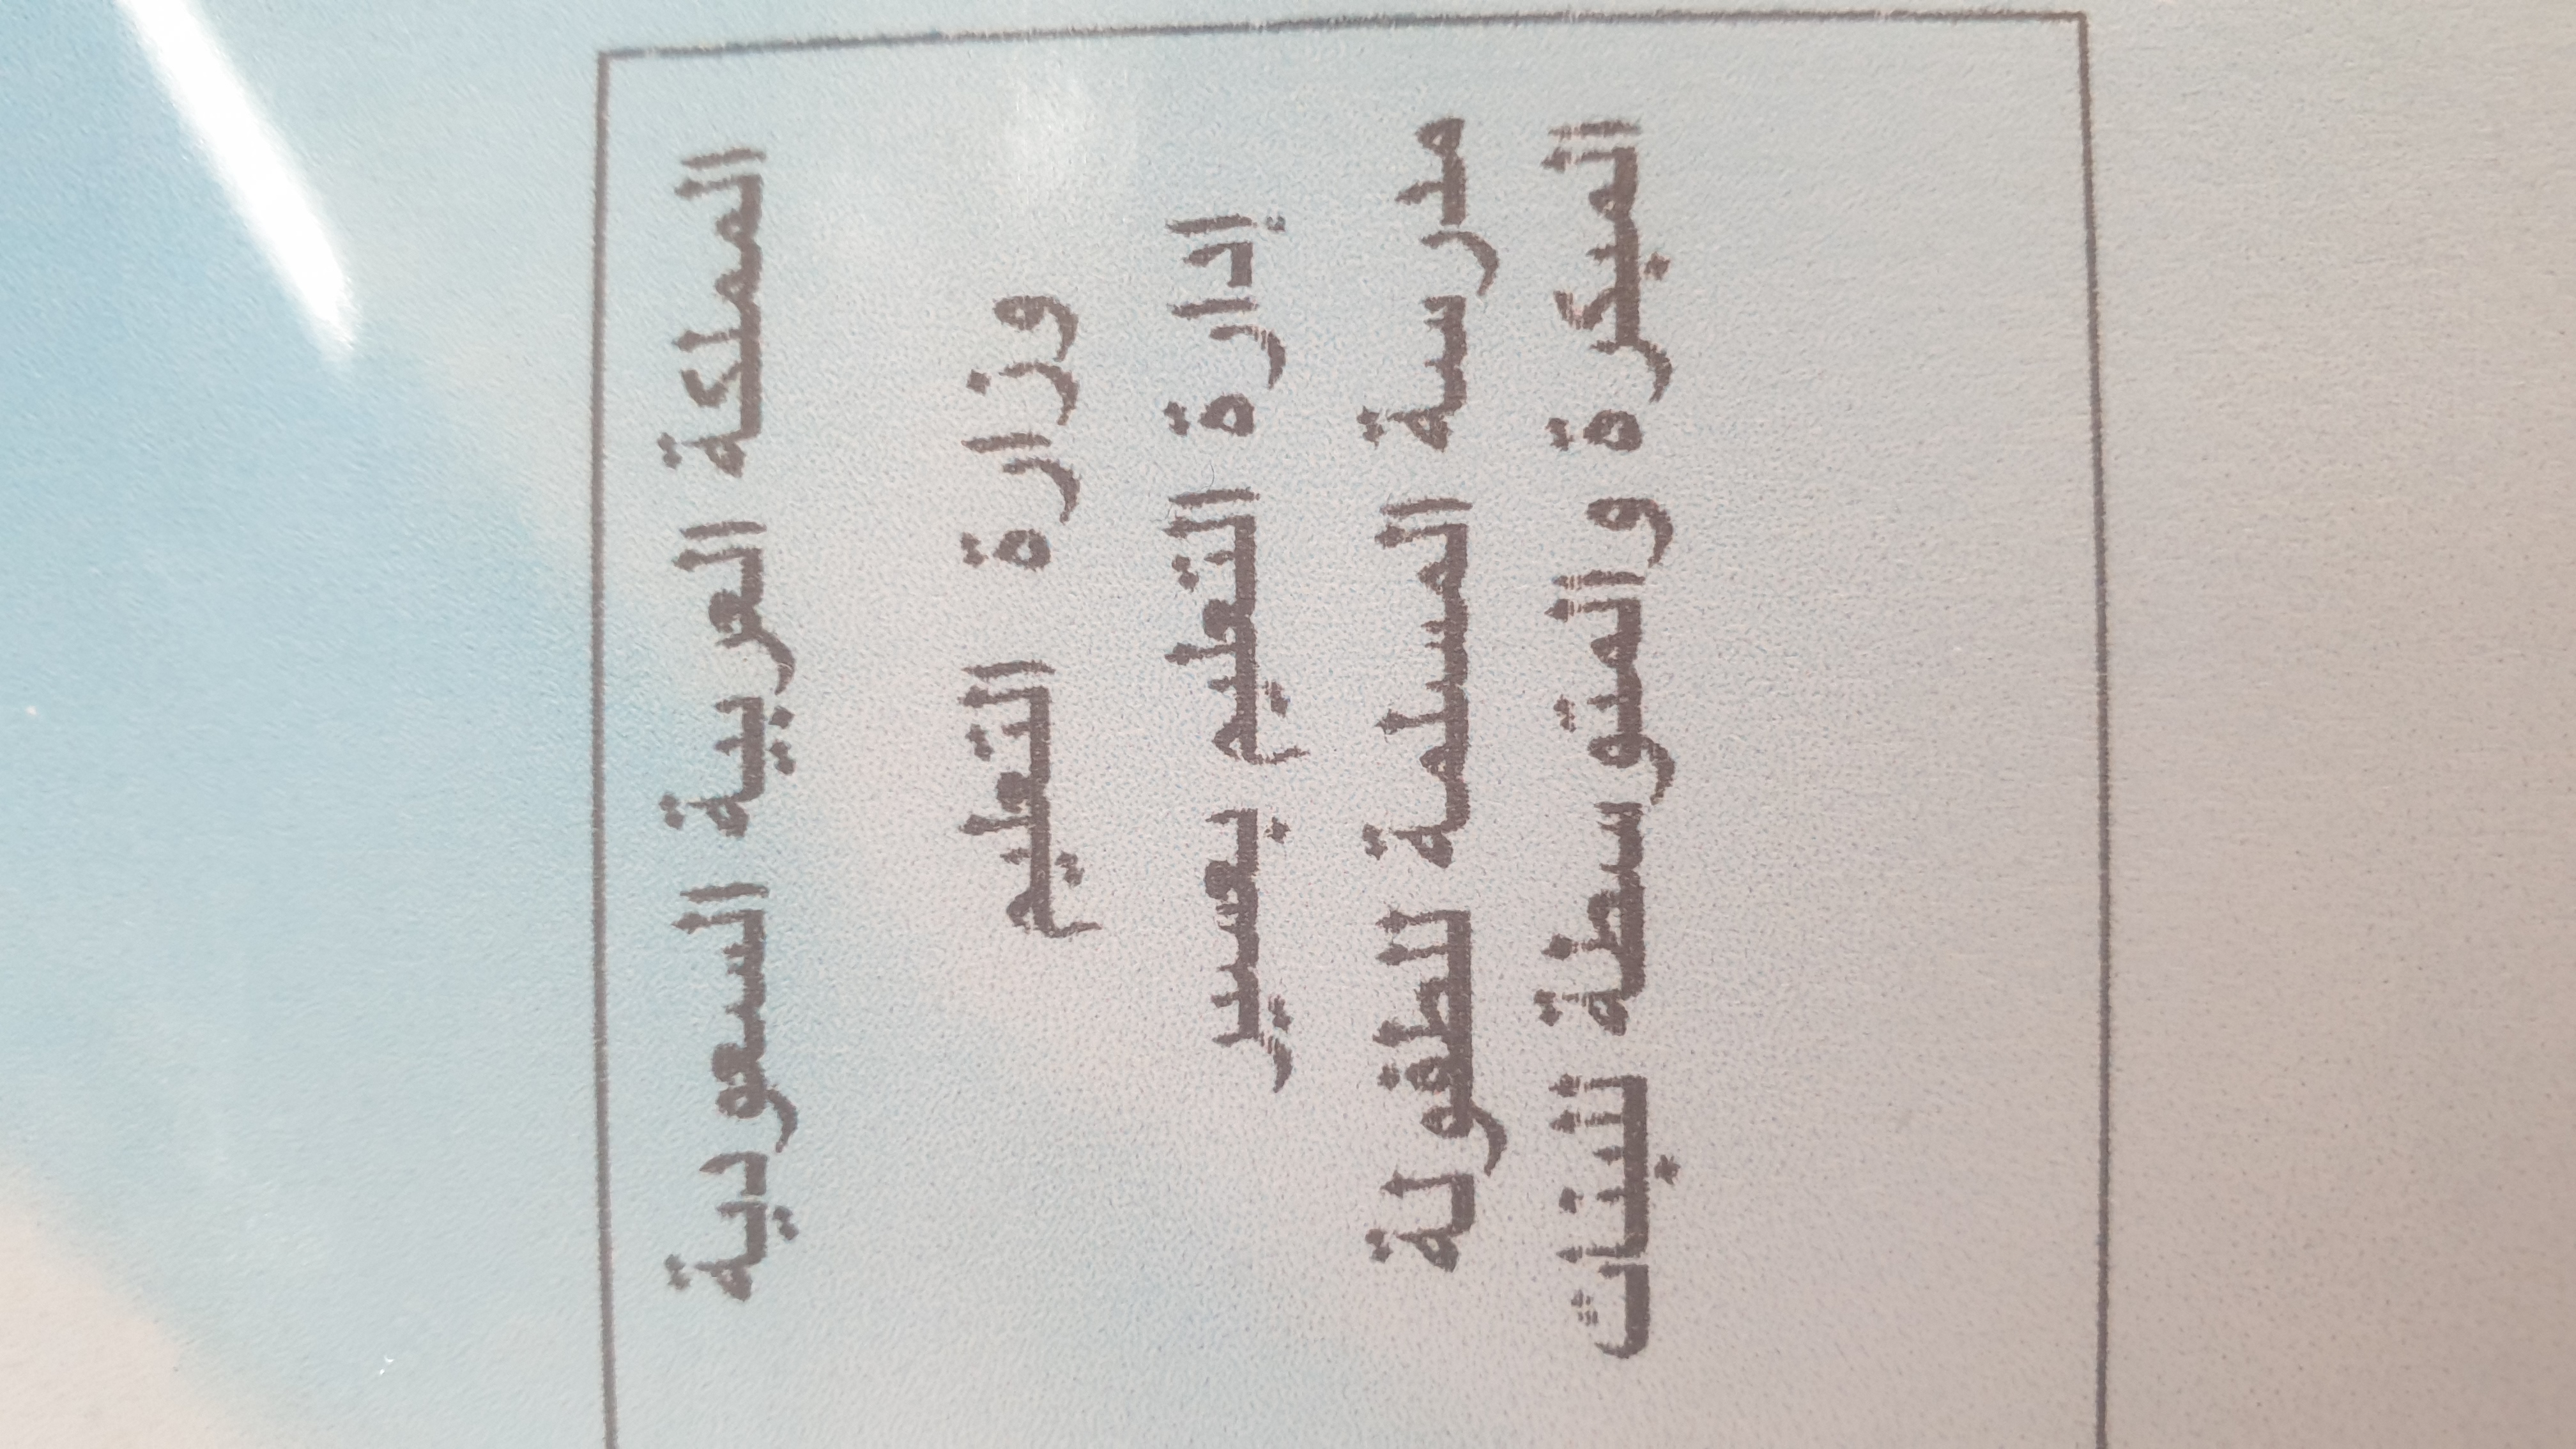 المملكة العربية السعودية
وزارة التعليم
إدارة التعليم بعسير
مدرسة المسلمة للطفولة
المبكرة والمتوسطة للبنات